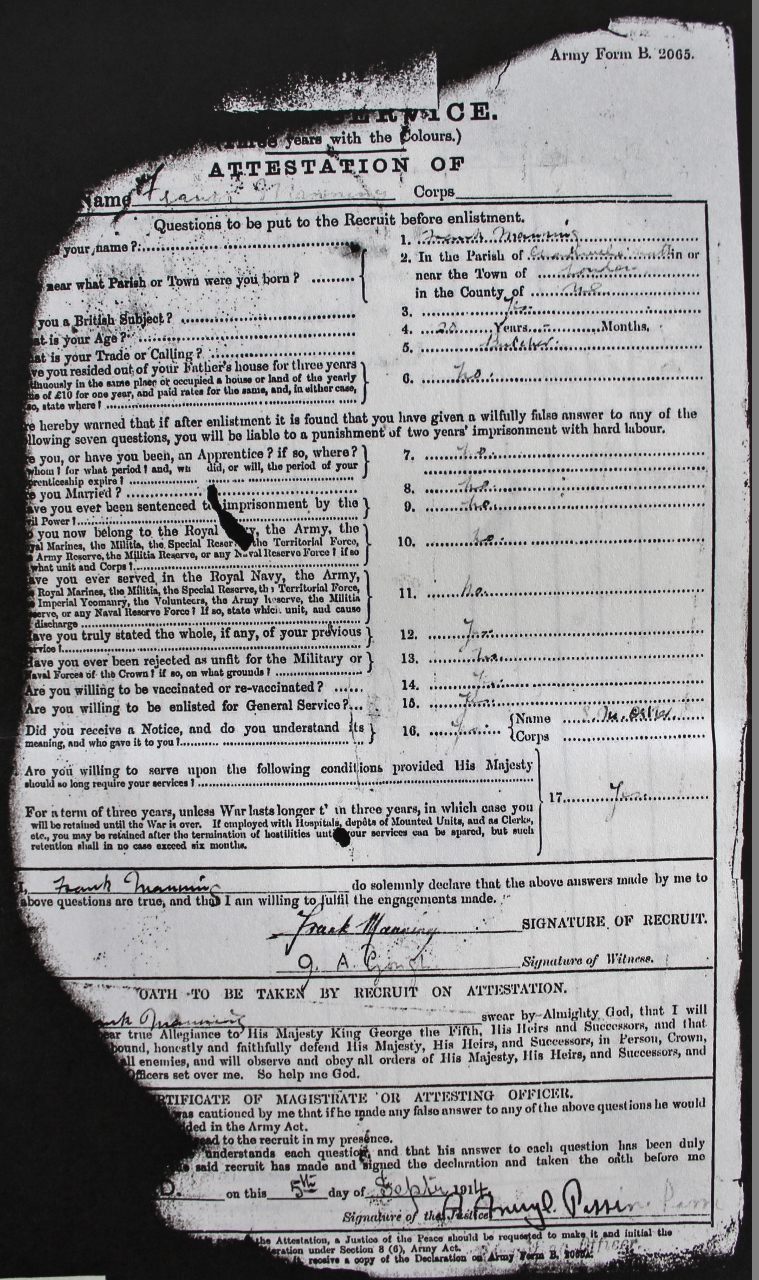 Army Form B. 2065.
ERVICE.
years with the Colours.)
ATTESTATION OF
Name Frank Manning Corps
Questions to be put to the Recruit before enlistment.
your name ? 1. Frank Manning
near what Parish or Town were you born ? 2. In the Parish of in or
near the Town of London
in the County of
you a British Subject ? 3. Yes
at is your Age ? 4. 20 Years Months,
at is your Trade or Calling ? 5. Butcher
ve you resided out of your Father's house for three years
tinuously in the same place or occupied a house or land of the yearly 6. No
e of £10 for one year, and paid rates for the same, and, in either case,
so, state where ?
e hereby warned that if after enlistment it is found that you have given a wilfully false answer to any of the
llowing seven questions, you will be liable to a punishment of two years' imprisonment with hard labour.
e you, or have you been, an Apprentice ? if so, where ? 7. No
whom ? for what period ? and, wh did, or will, the period of your
prenticeship expire ?
e you Married ? 8. No
ave you ever been sentenced to imprisonment by the 9. No
il Power ?
you now belong to the Royal vy, the Army, the
yal Marines, the Militia, the Special Reserve, the Territorial Force, 10. No
Army Reserve, the Militia Reserve, or any Naval Reserve Force ? if so
what unit and Corps ?
ave you ever served in the Royal Navy, the Army,
Royal Marines, the Militia, the Special Reserve, the Territorial Force, 11. No
Imperial Yeomanry, the Volunteers, the Army Reserve, the Militia
serve, or any Naval Reserve Force ? If so, state which unit, and cause
discharge
ave you truly stated the whole, if any, of your previous 12. Yes
ervice ?
Have you ever been rejected as unfit for the Military or 13. No
Naval Forces of the Crown ? if so, on what grounds ?
Are you willing to be vaccinated or re-vaccinated ? 14. Yes
Are you willing to be enlisted for General Service ? 15. Yes
Did you receive a Notice, and do you understand its 16. Yes Name
meaning, and who gave it to you ? Corps
Are you willing to serve upon the following conditions provided His Majesty
should so long require your services ?
17. Yes
For a term of three years, unless War lasts longer t' n three years, in which case you
will be retained until the War is over. If employed with Hospitals, depôts of Mounted Units, and as Clerks,
etc., you may be retained after the termination of hostilities until your services can be spared, but such
retention shall in no case exceed six months.
I, Frank Manning do solemnly declare that the above answers made by me to
above questions are true, and that I am willing to fulfil the engagements made.
Frank Manning SIGNATURE OF RECRUIT.
J. A. Signature of Witness.
OATH TO BE TAKEN BY RECRUIT ON ATTESTATION.
ank Manning swear by Almighty God, that I will
ear true Allegiance to His Majesty King George the Fifth, His Heirs and Successors, and that
bound, honestly and faithfully defend His Majesty, His Heirs, and Successors, in Person, Crown,
all enemies, and will observe and obey all orders of His Majesty, His Heirs, and Successors, and
Officers set over me. So help me God.
RTIFICATE OF MAGISTRATE OR ATTESTING OFFICER.
was cautioned by me that if he made any false answer to any of the above questions he would
ided in the Army Act.
ead to the recruit in my presence.
understands each question, and that his answer to each question has been duly
said recruit has made and signed the declaration and taken the oath before me
on this 5th day of Septr 1914
Signature of the Justice
the Attestation, a Justice of the Peace should be requested to make it and initial the
aration under Section 8 (6), Army Act.
receive a copy of the Declaration on Army Form B. 2065A.